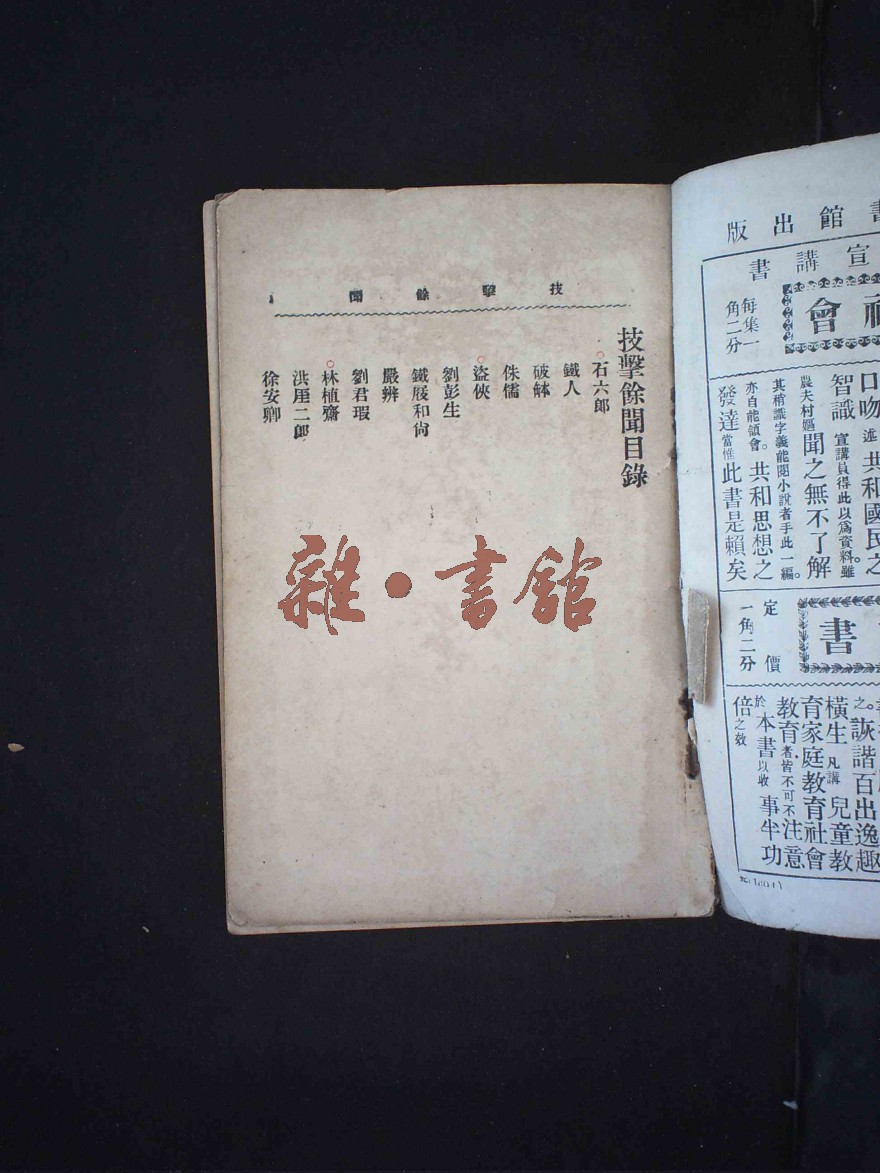 技擊餘聞
技擊餘聞目錄
石六郎
鐵人
破缽
侏儒
盜俠
劉彭生
鐵屐和尙
嚴辨
劉君瑕
林植齋
洪厝二郎
徐安卿
雜・書館
館出版
宣講書
會
每集一
角二分
口吻述共和國民之
智識宣講員得此以爲資料雖
農夫村嫗聞之無不了解
其稍識字義能閱小說者手此一編。
亦自能領會。共和思想之
發達當惟此書是賴矣
書
定價
一角二分
之。詼諧百出逸趣
橫生凡講兒童教
育家庭教育社會
教育者皆不可不注意
於本書以收事半功
倍之效